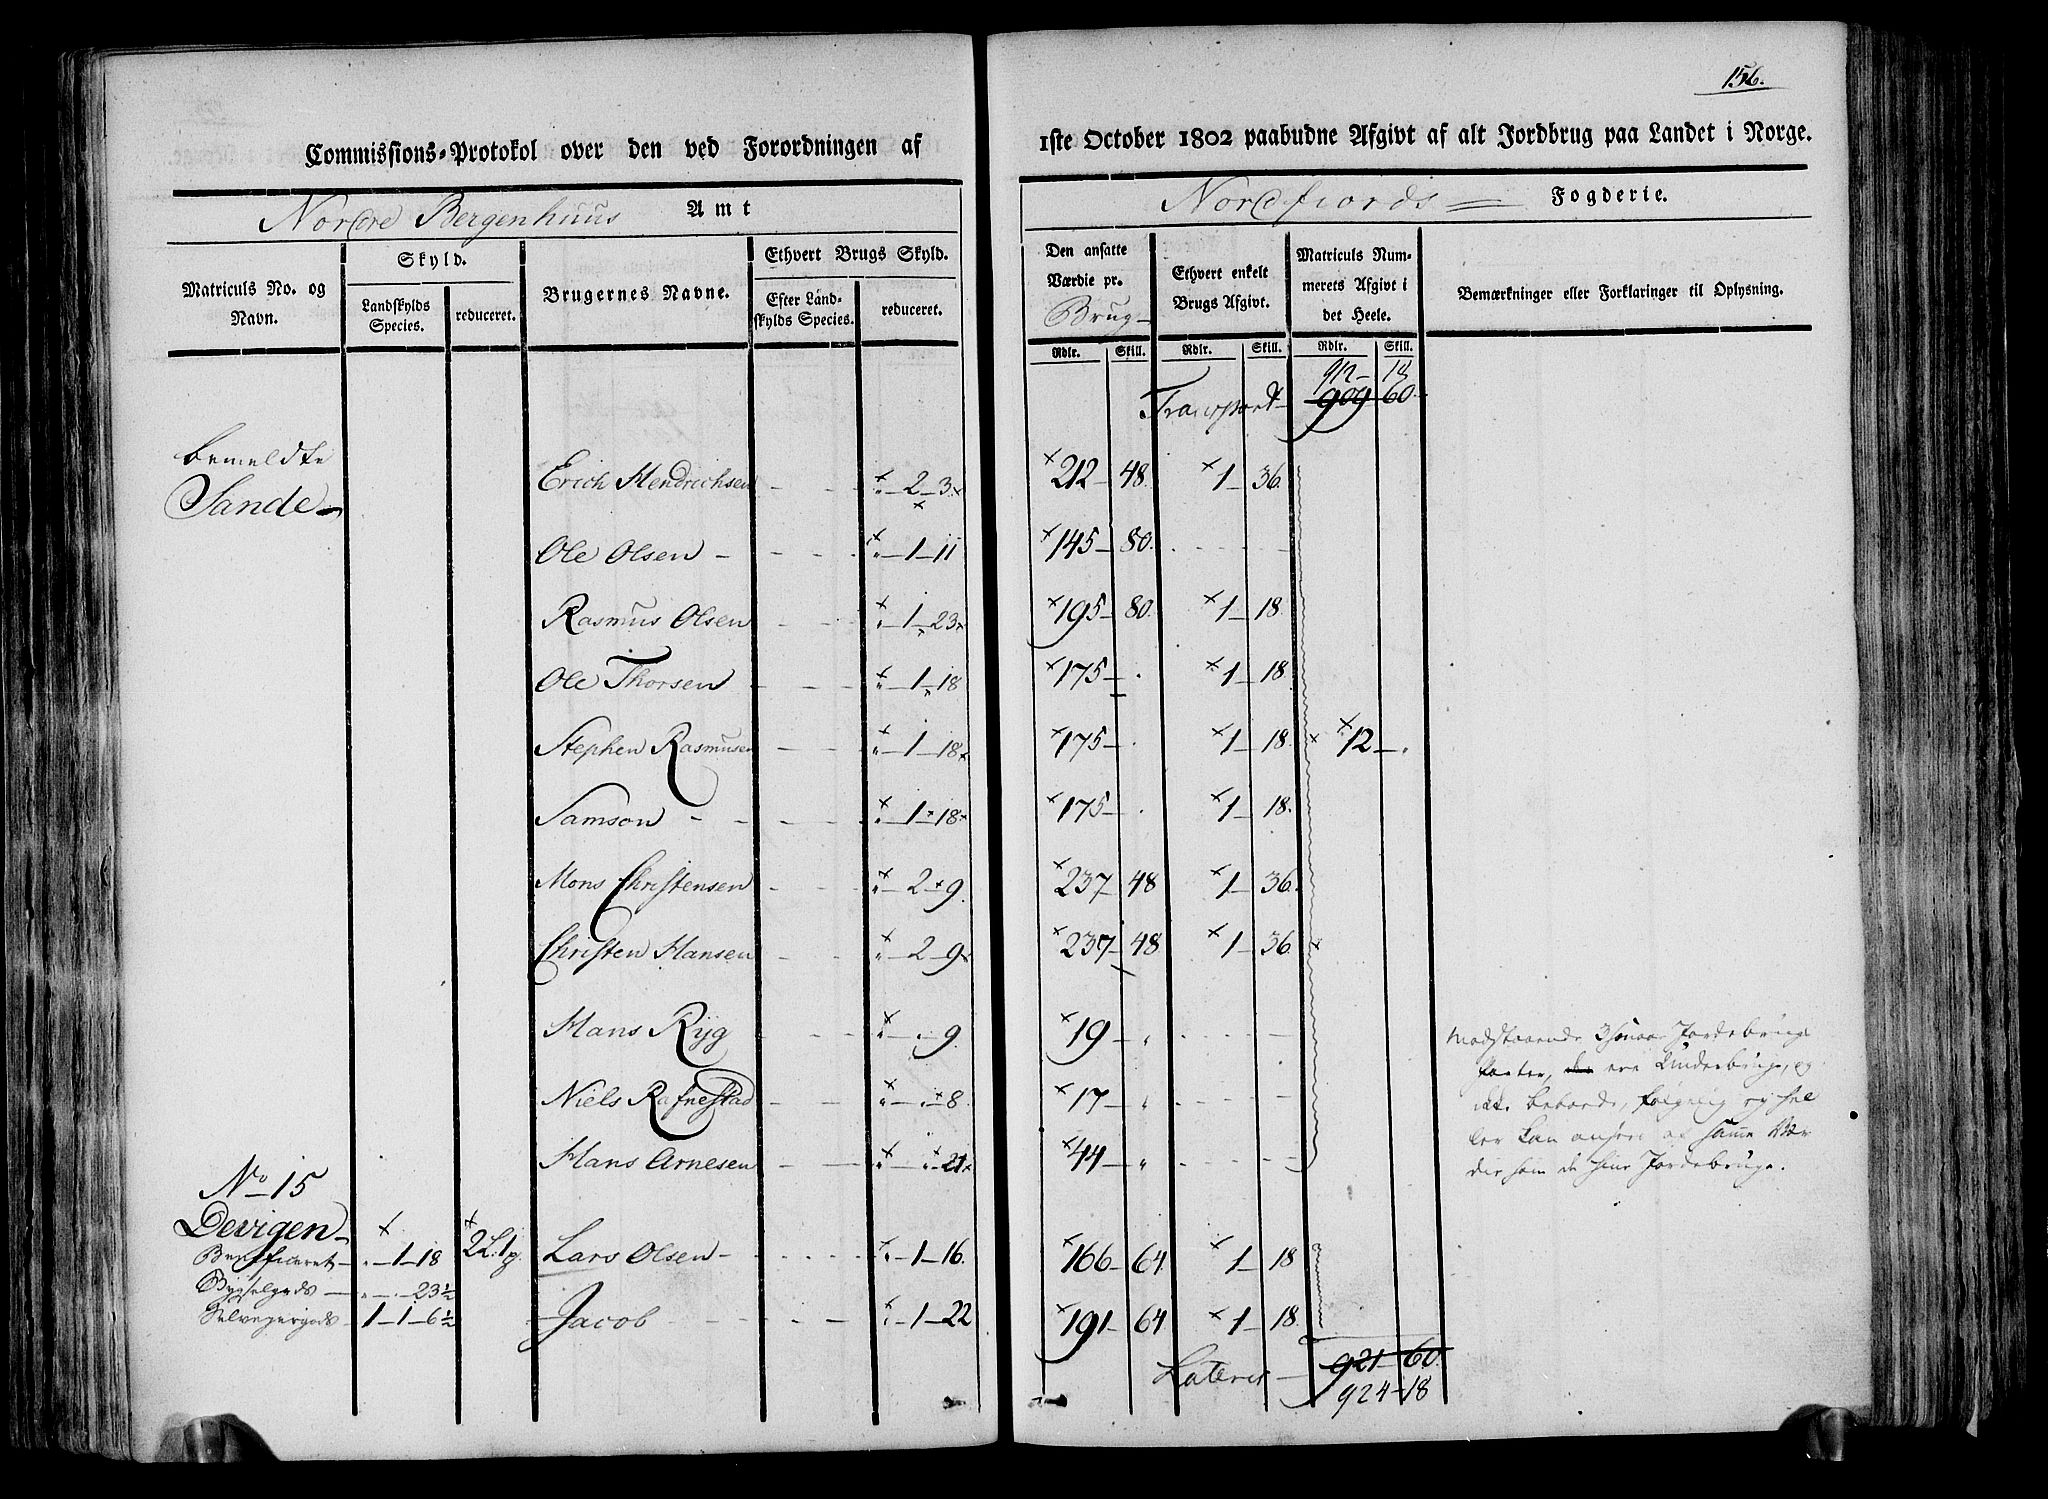 156.
Commissions-Protokol over den ved Forordningen af 1ste October 1802 paabudne Afgivt af alt Jordbrug paa Landet i Norge.
Nordre Bergenhuus Amt
Nordfiords Fogderie.
Matriculs No. og Navn.
Skyld.
Landskylds Species.
reduceret.
Brugernes Navne.
Ethvert Brugs Skyld.
Efter Landskylds Species.
reduceret.
Den ansatte Værdie pr. Brug
Ethvert enkelt Brugs Afgivt.
Matriculs Nummerets Afgivt i det Heele.
Bemærkninger eller Forklaringer til Oplysning.
Rdlr. Skill. Rdlr. Skill. Rdlr. Skill.
912 - 18
Transport 909 60
bemeldte
Sande
Erich Hendrichsen - - " - 2 - 3 212 - 48. 1 - 36.
Ole Olsen - - - - " - 1 - 11 145 - 80.
Rasmus Olsen - - " - 1 - 23 195 - 80. 1 - 18.
Ole Thorsen - - - " - 1 - 18 175 - . 1 - 18.
Stephen Rasmusen - - - " - 1 - 18 175 - . 1 - 18. 12 - .
Samson - - - - " - 1 - 18 175 - . 1 - 18.
Mons Christensen - - " - 2 - 9. 237 - 48 1 - 36.
Christen Hansen " - 2 - 9 237 - 48 1 - 36.
Hans Ryg - - " - . - 9. 19 - "
Niels Rafnestad - - " - . - 8. 17 - "
Hans Arnesen - - " - " - 21 44 - "
Modstaaende 3 smaae Jordebrugs
Parter, ere Underbruge, og
ikke beboede, følgelig ey hel
ler kan ansees af samme Vær
die som de hine Jordebruge.
No 15
Devigen
Beneficeret - " - 1 - 18 2 L. 1 p. Lars Olsen - - - - " - 1 - 16. 166 - 64. 1 - 18
Bygselgods - " - . - 23½
Selveiergods - 1 - 1 - 6½ Jacob - - - - " - 1 - 22 191 - 64 1 - 18.
Lateris - 921 - 60.
924 - 18